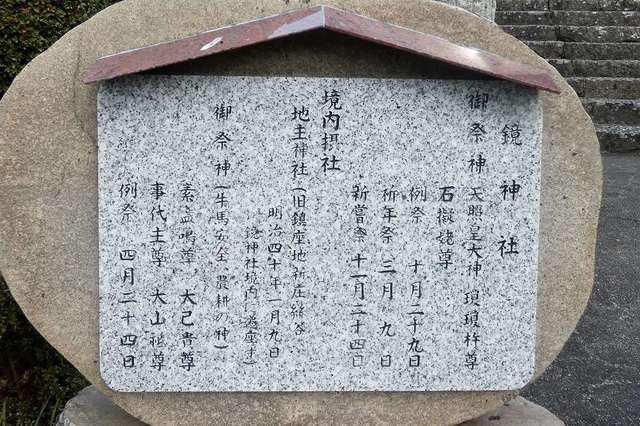 鏡神社
御祭神 天照皇大神 瓊瓊杵尊
石凝姥尊
例祭 十月二十九日
祈年祭 三月九日
新嘗祭 十一月二十四日
境内摂社
地主神社(旧鎮座地祈庄
明治四十年一月九日
鏡神社境内ニ遷座す)
御祭神(牛馬安全 農耕の神)
素盞鳴尊 大己貴尊
事代主尊 大山祗尊
例祭 四月二十四日